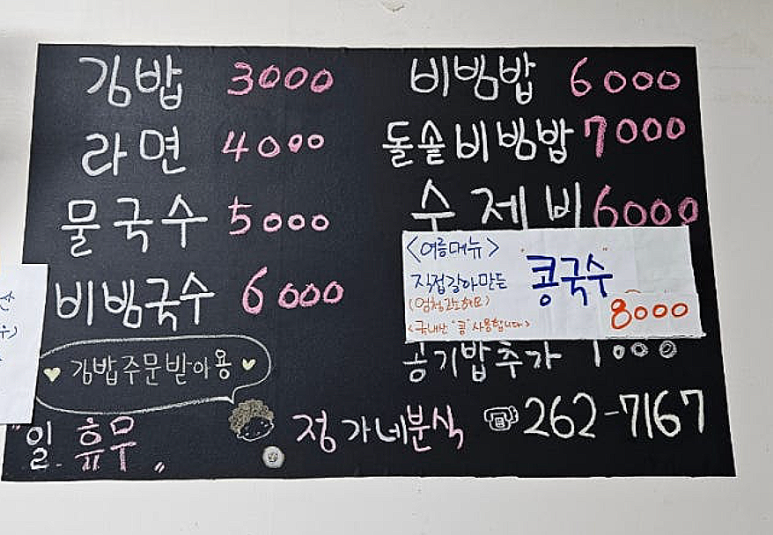 김밥 3000
라면 4000
물국수 5000
비빔국수 6000
김밥주문받아용
"일 휴무"
비빔밥 6000
돌솥비빔밥 7000
수제비 6000
<여름메뉴>
직접갈아만든 "콩국수"
(엄청고소해요)
<국내산 "콩" 사용합니다> 8000
공기밥추가 1000
정가네분식 ☎262-7167